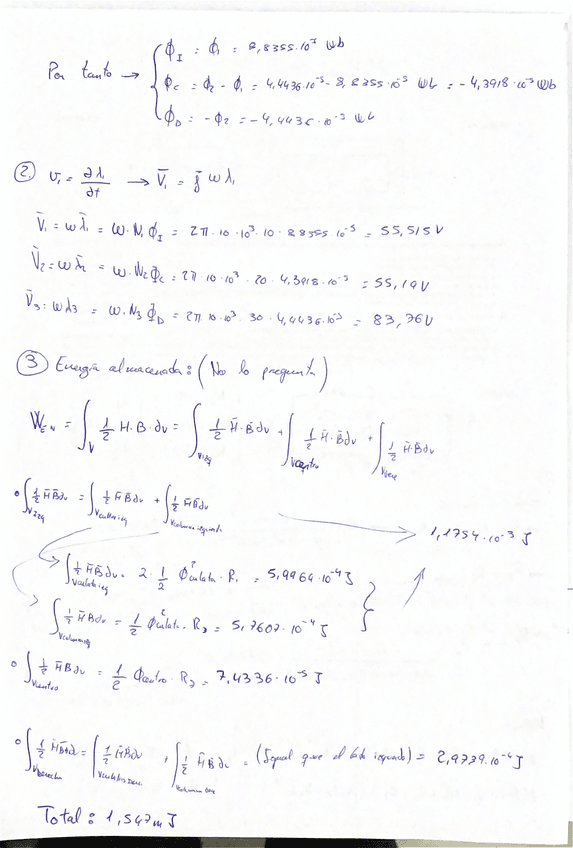 Por tanto → { ϕ_I = ϕ₁ = 8,8355·10⁻⁵ Wb
ϕ_C = ϕ₂ - ϕ₁ = 4,4436·10⁻⁵ - 8,8355·10⁻⁵ Wb = -4,3918·10⁻⁵ Wb
ϕ_D = -ϕ₂ = -4,4436·10⁻⁵ Wb
② v₁ = ∂λ₁/∂t → V̄₁ = j ω λ₁
V̄₁ = ω λ̄₁ = ω·N₁ ϕ_I = 2π·10·10³·10·8,8355·10⁻⁵ = 55,515V
V̄₂ = ω λ̄₂ = ω·N₂ ϕ_C = 2π·10·10³·20·4,3918·10⁻⁵ = 55,19V
V̄₃ = ω λ₃ = ω·N₃ ϕ_D = 2π·10·10³·30·4,4436·10⁻⁵ = 83,76V
③ Energía almacenada: (No lo pregunta)
= ∫_V ½ H·B·dv = ∫_Vizq ½ H̄·B̄dv + ∫_Vcentro ½ H̄·B̄dv + ∫ ½ H̄·B̄dv
∘ ∫_Vizq ½ H̄B̄dv = ∫ ½ H̄B̄dv + ∫_Vcolumna izquierda ½ H̄B̄dv → 1,1754·10⁻³ J
∫ ½ H̄B̄dv = 2·½ ϕ²culata·R₁ = 5,9964·10⁻⁴ J
∫ ½ H̄B̄dv = ½ ϕ²culata·R₂ = 5,7607·10⁻⁴ J }
∘ ∫_Vcentro ½ H̄B̄dv = ½ ϕcentro·R₂ = 7,4336·10⁻⁵ J
∘ ∫_Vderecha ½ H̄B̄dv = ∫ ½ H̄B̄dv + ∫ ½ H̄B̄dv = (Igual que el lado izquierdo) = 2,9739·10⁻⁴ J
Total: 1,547mJ